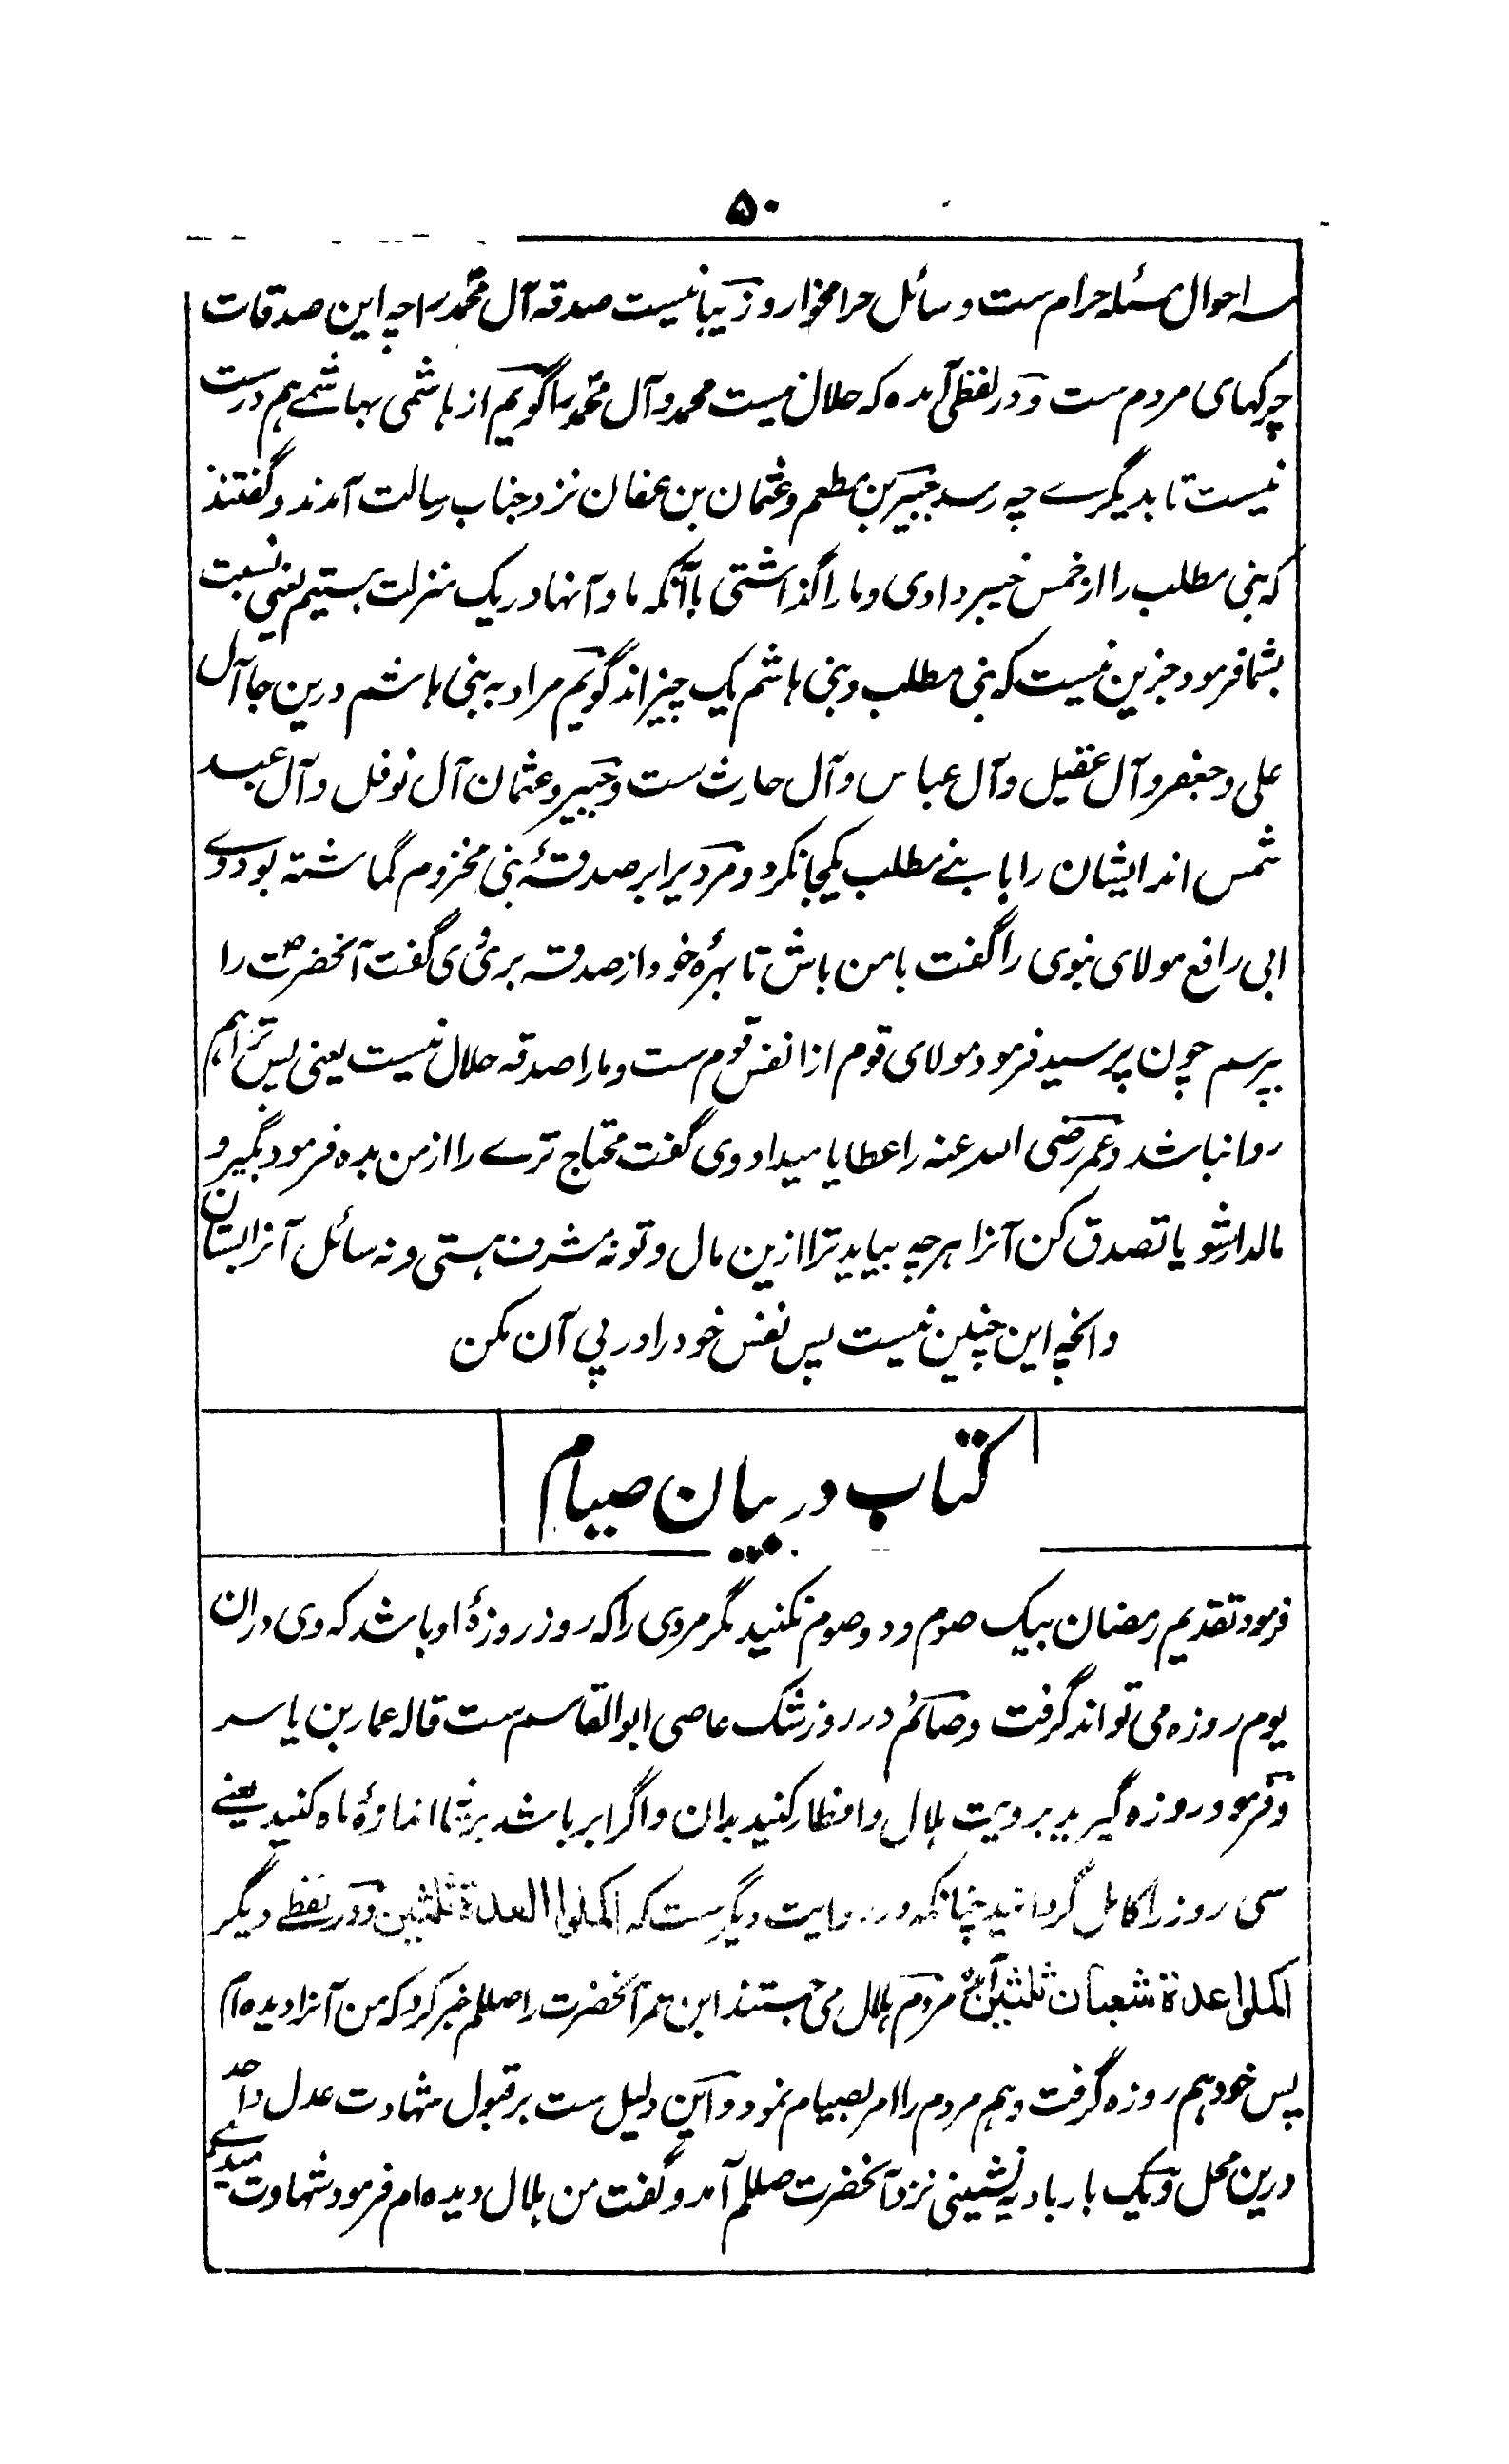 ۵۰
سه احوال مسئله حرام ست و سائل حرامخوار و زیبا نیست صدقه آل محمد را چه این صدقات
چرکهای مردم ست و در لفظی آمده که حلال نیست محمد و آل محمد را گویم از هاشمی بهاشمے هم درست
نیست تا بدیگرے چه رسد جبیر بن مطعم و عثمان بن عفان نزد جناب رسالت آمدند و گفتند
که بنی مطلب را از خمس خیبر دادی و ما را گذاشتی باآنکه ما و آنها در یک منزلت هستیم یعنی نسبت
بشما فرمود جزین نیست که بنی مطلب و بنی هاشم یک چیز اند گویم مراد به بنی هاشم درین جا آل
علی و جعفر و آل عقیل و آل عباس و آل حارث ست و جبیر و عثمان آل نوفل و آل عبد
شمس اند ایشان را با بنے مطلب یکجا نکرد و مردیرا بر صدقۂ بنی مخزوم گماشته بود وے
ابی رافع مولای نبوی را گفت با من باش تا بهرۂ خود از صدقه بری وی گفت آنحضرت را
بپرسم چون پرسید فرمود مولای قوم از انفس قوم ست و ما را صدقه حلال نیست یعنی پس ترا هم
روا نباشد و عمر رضی الله عنه را عطایا میداد وی گفت محتاج ترے را از من بده فرمود بگیر و
مالدار شو یا تصدق کن آنرا هر چه بیاید ترا ازین مال و تو نه مشرف هستی و نه سائل آنرا بستان
وانچه این چنین نیست پس نفس خود را در پی آن مکن
کتاب در بیان صیام
فرمود تقدیم رمضان بیک صوم و دو صوم نکنید مگر مردی را که روز روزۂ او باشد که وی دران
یوم روزه می تواند گرفت و صائم در روز شک عاصی ابوالقاسم ست قاله عمار بن یاسر
و فرمود روزه گیرید برویت هلال و افطار کنید بدان و اگر ابر باشد بر شما اندازۂ ماه کنید یعنے
سی روز را کامل گردانید چنانکه در روایت دیگرست که اکملوا العدة ثلثین و در لفظے دیگر
اکملوا عدة شعبان ثلثین مردم هلال می جستند ابن عمر آنحضرت را صللم خبر کرد که من آنرا دیده ام
پس خود هم روزه گرفت و هم مردم را امر بصیام نمود و این دلیل ست بر قبول شهادت عدل واحد
درین محل و یک بار بادیه نشینی نزد آنحضرت صللم آمد و گفت من هلال دیده ام فرمود شهادت میدهے